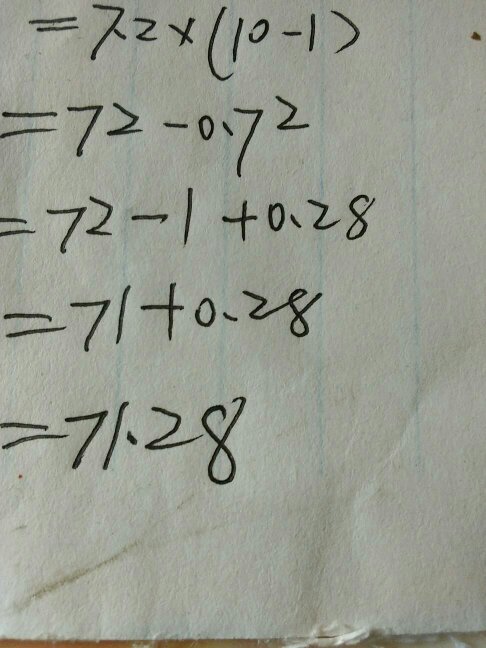 =7.2×(10-1)
=72-0.72
=72-1+0.28
=71+0.28
=71.28